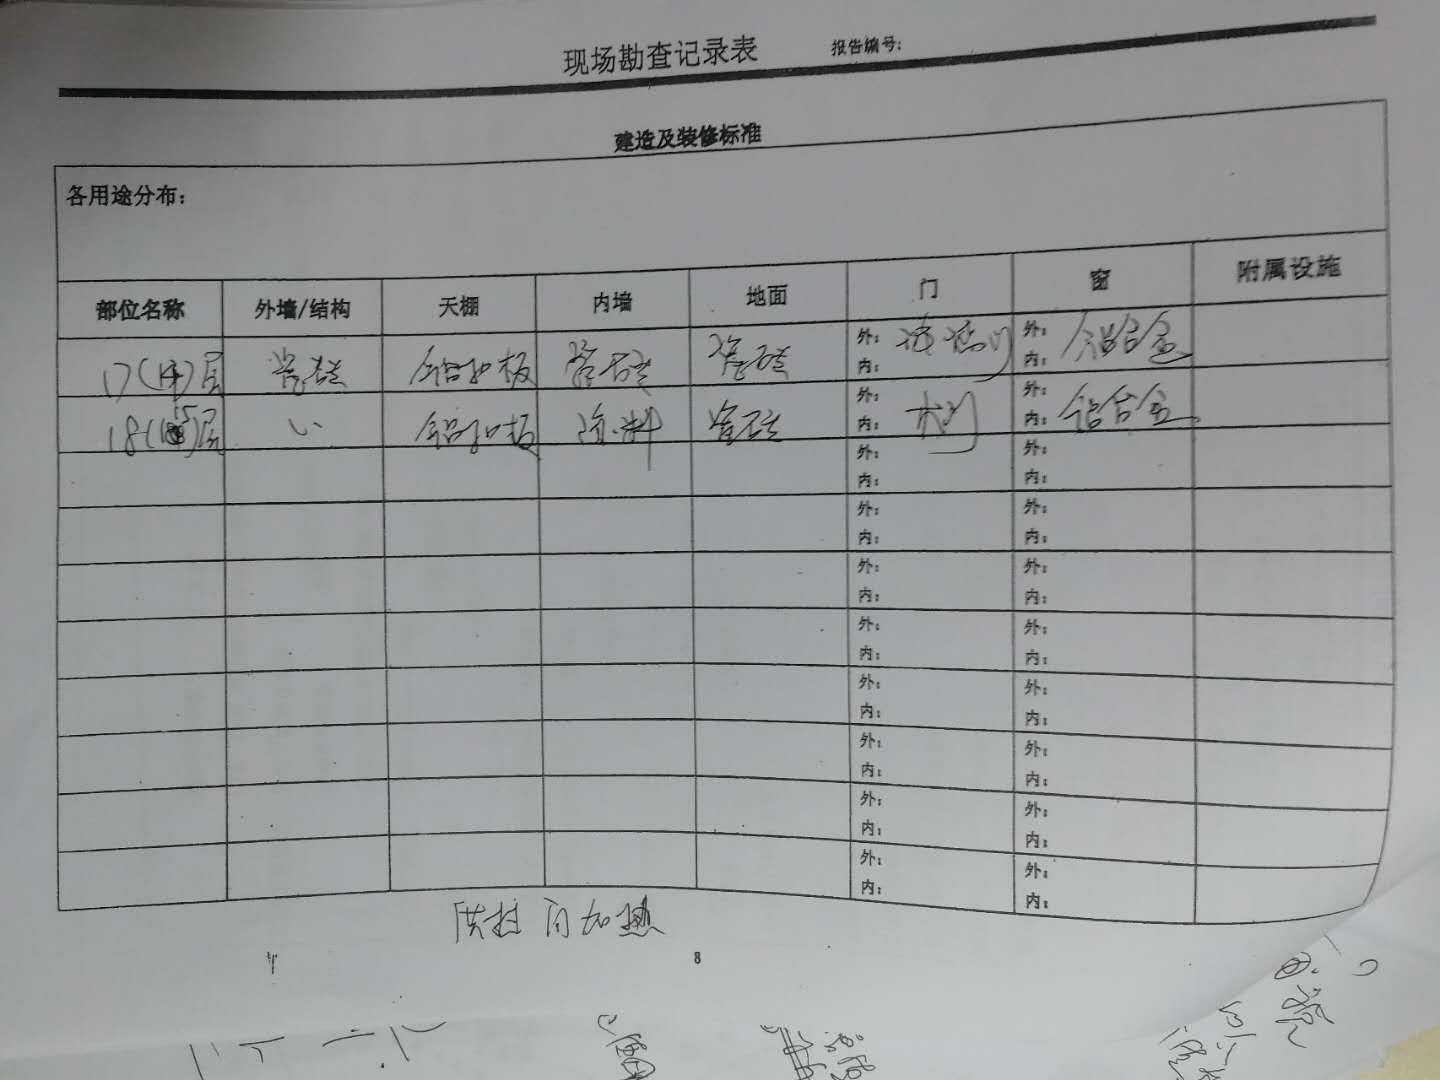 现场勘查记录表 报告编号:
建造及装修标准
各用途分布:
部位名称 外墙/结构 天棚 内墙 地面 门 窗 附属设施
外: 外: 铝合金
17( )层 瓷砖 铝扣板 瓷砖 瓷砖 内: 内:
外: 外:
18( )层 〃 铝扣板 涂料 瓷砖 内: 木门 内: 铝合金
外: 外:
内: 内:
外: 外:
内: 内:
外: 外:
内: 内:
外: 外:
内: 内:
外: 外:
内: 内:
外: 外:
内: 内:
外: 外:
内: 内:
外: 外:
内: 内:
加热
8